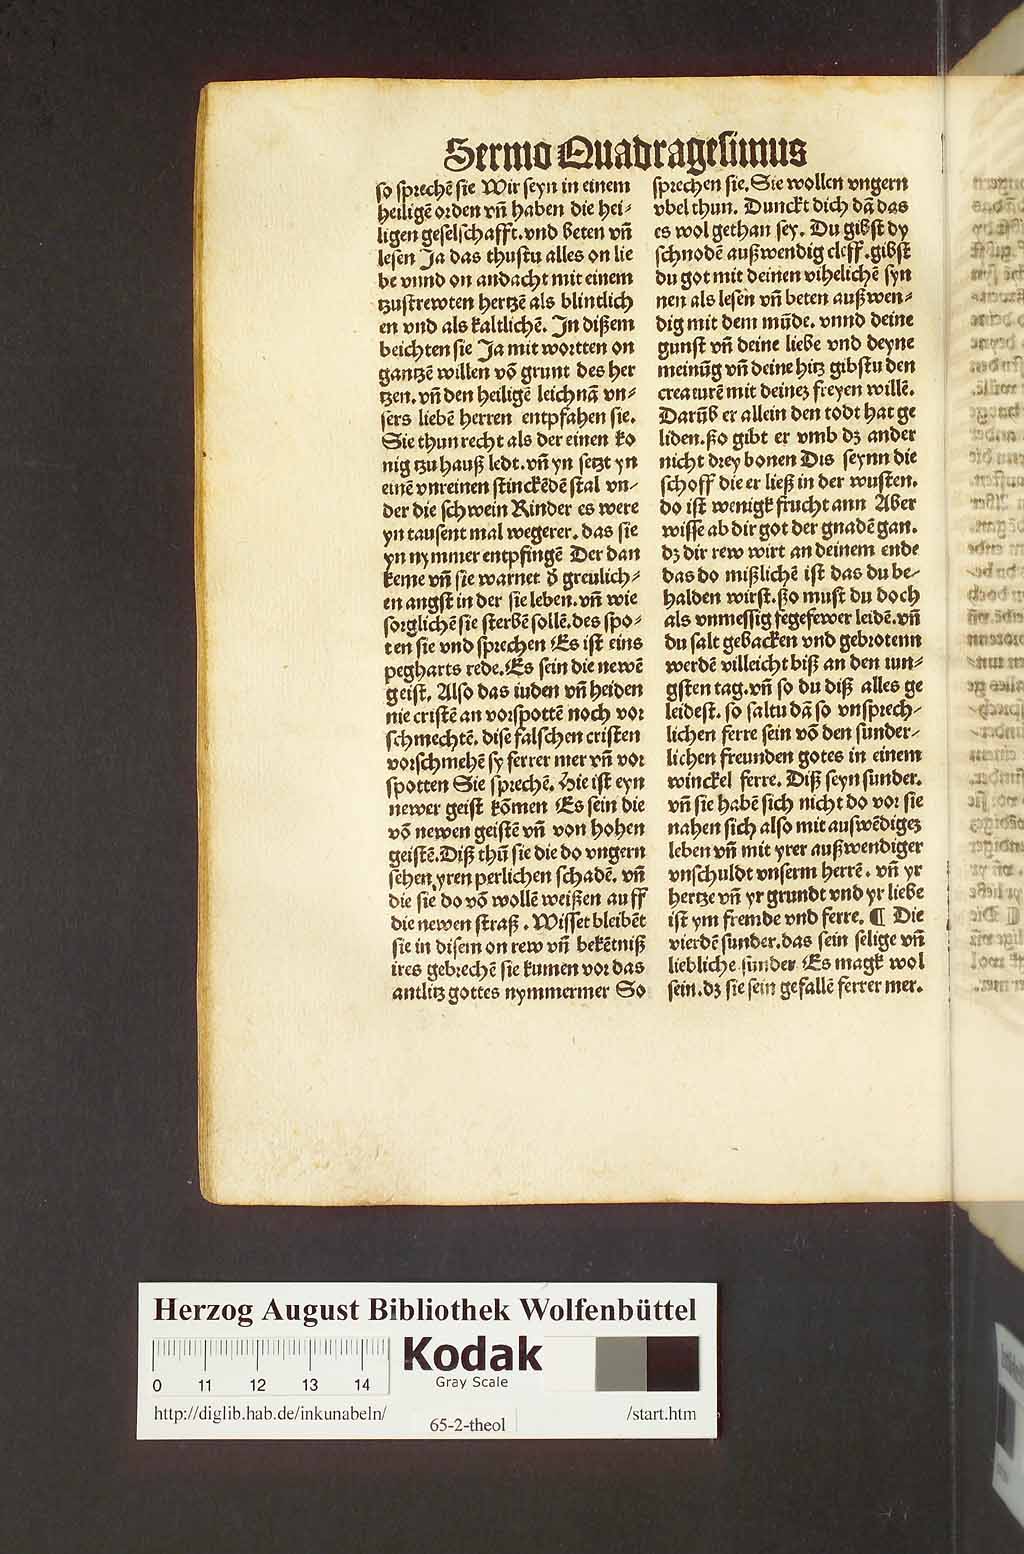 Sermo Quadragesimus
so sprechē sie Wir seyn in einem
heiligē orden vñ haben die hei⸗
ligen geselschafft. vnd beten vñ
lesen Ja das thustu alles on lie
be vnnd on andacht mit einem
tzustrewten hertzē als blintlich
en vnd als kaltlichē. Jn dißem
beichten sie Ja mit wortten on
gantzē willen vō grunt des her
tzen. vñ den heiligē leichnā vn⸗
sers liebē herren entpfahen sie.
Sie thun recht als der einen ko
nig tzu hauß ledt. vñ yn setzt yn
einē vnreinen stinckēdē stal vn⸗
der die schwein Rinder es were
yn tausent mal wegerer. das sie
yn nymmer entpfingē Der dan
keme vñ sie warnet d̄ greulich⸗
en angst in der sie leben. vñ wie
sorglichē sie sterbē sollē. des spo⸗
ten sie vnd sprechen Es ist eins
pegharts rede. Es sein die newē
geist. Also das iuden vñ heiden
nie cristē an vorspottē noch vor
schmechtē. dise falschen cristen
vorschmehē sy ferrer mer vñ vor
spotten Sie sprechē. Hie ist eyn
newer geist kōmen Es sein die
vō newen geistē vñ von hohen
geistē. Diß thū sie die do vngern
sehen yren perlichen schadē. vñ
die sie do vō wollē weißen auff
die newen straß. Wisset bleibēt
sie in disem on rew vñ bekētniß
ires gebrechē sie kumen vor das
antlitz gottes nymmermer So
sprechen sie. Sie wollen vngern
vbel thun. Dunckt dich dā das
es wol gethan sey. Du gibst dy
schnodē außwendig cleff. gibst
du got mit deinen vihelichē syn
nen als lesen vñ beten außwen⸗
dig mit dem mūde. vnnd deine
gunst vñ deine liebe vnd deyne
meinūg vñ deine hitz gibstu den
creaturē mit deinez freyen willē.
Darūb er allein den todt hat ge
liden. ßo gibt er vmb dz ander
nicht drey bonen Dis seynn die
schoff die er ließ in der wusten.
do ist wenigk frucht ann Aber
wisse ab dir got der gnadē gan.
dz dir rew wirt an deinem ende
das do mißlichē ist das du be⸗
halden wirst. ßo must du doch
als vnmessig fegefewer leidē. vñ
du salt gebacken vnd gebrotenn
werdē villeicht biß an den iun⸗
gsten tag. vñ so du diß alles ge
leidest. so saltu dā so vnsprech⸗
lichen ferre sein vō den sunder⸗
lichen freunden gotes in einem
winckel ferre. Diß seyn sunder.
vñ sie habē sich nicht do vor sie
nahen sich also mit auswēdigez
leben vñ mit yrer außwendiger
vnschuldt vnserm herrē. vñ yr
hertze vñ yr grundt vnd yr liebe
ist ym fremde vnd ferre. ¶ Die
vierdē sunder. das sein selige vñ
liebliche sunder Es magk wol
sein. dz sie sein gefallē ferrer mer.
Herzog August Bibliothek Wolfenbüttel
Kodak
Gray Scale
0 11 12 13 14
http://diglib.hab.de/inkunabeln/
65-2-theol
/start.htm